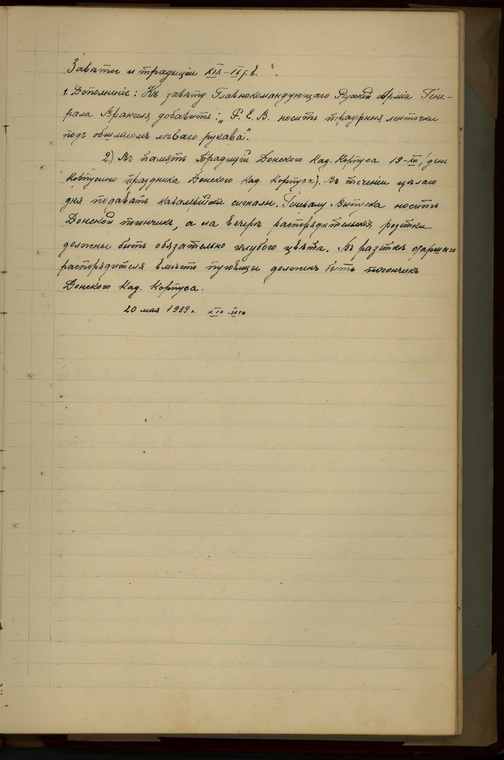 Завѣты и традиціи XIX-IX г. в.
1. Дополненіе: Къ завѣту Главнокомандующаго Русской Арміи Гене-
рала Врангеля добавить: „Г. Е. В. носитъ траурныя ленточки
подъ обшлагомъ лѣваго рукава“.
2) Въ память Традицій Донского Кад. Корпуса 19-XII/день
Корпусного праздника Донского Кад. Корпуса). Въ теченіи цѣлаго
дня подавать кавалерійскіе сигналы. Генералу Выпуска носить
Донской погончикъ, а на вечерѣ распорядительскія розетки
должны быть обязательно голубого цвѣта. Въ розеткѣ старшаго
распорядителя вмѣсто пуговицы долженъ быть погончикъ
Донского Кад. Корпуса.
20 мая 1939 г. XIX-IX го